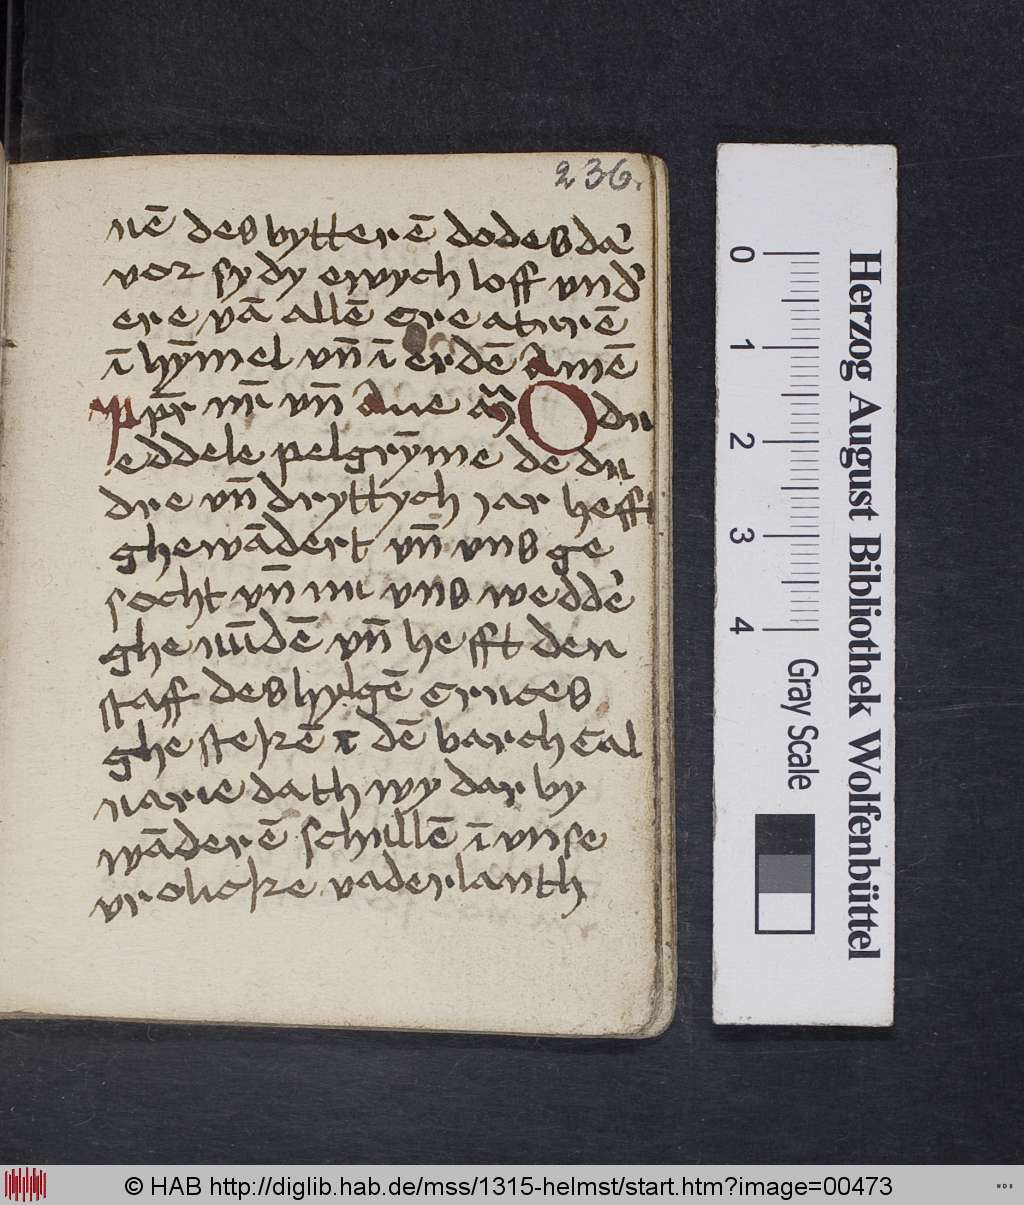 236.
nē des bytterē dodes dar̄
vor sy dy ewych loff vnd̕
ere vā allē creaturē
ī hȳmel vn̄ ī erdē Amē
pr̄ nr̄ vn̄ Aue O du
eddele pelgrȳme de du
dre vn̄ dryttych iar hefft
ghewādert vn̄ vns ge
socht vn̄ nu vns wedde̕
ghe vn̄dē vn̄ hefft den
staff des hylgē cruces
ghestekē ī dē barch Cal
uarie dath wy dar by
wāderē schullē ī vnse
vrolicke vaderlanth
Herzog August Bibliothek Wolfenbüttel
0 1 2 3 4
Gray Scale
© HAB http://diglib.hab.de/mss/1315-helmst/start.htm?image=00473